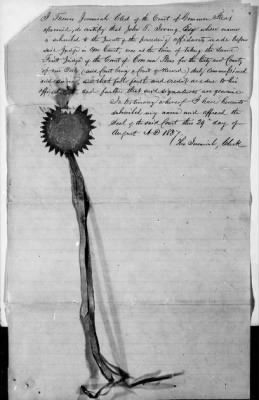 I Thomas Jeremiah Clerk of the Court of Common Pleas
aforesaid, do certify that John T. Irving Esq whose name
is subscribed to the Jurat of the preceding affidavits made before
said Judge in Open Court, was at the time of taking the same
First Judge of the Court of Common Pleas for the City and County
of New York (said Court being a Court of Record) duly Commissioned
and sworn and that full faith and credit are due to his
official and further that said signatures are genuine
In testimony whereof I have hereunto
subscribed my name and affixed the
Seal of the said Court this 29th day of
August A.D 1837.
Tho Jeremiah, Clerk